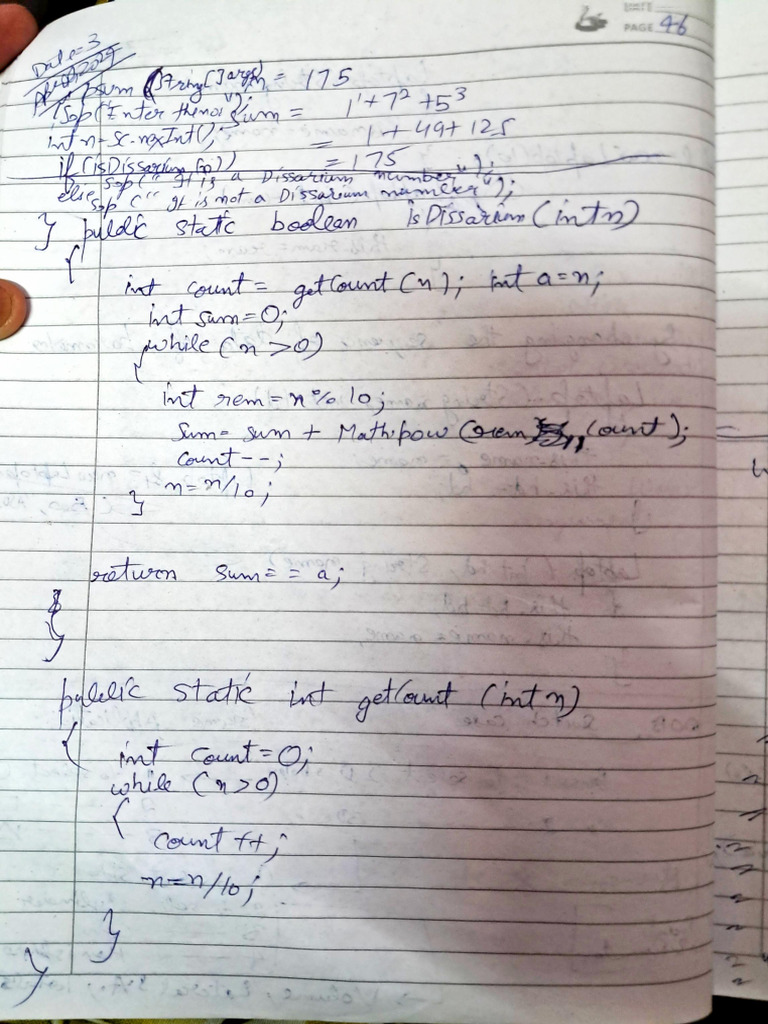 PAGE 46
Date = 3
psvm (String[] args) n = 175
Sop("Enter the no"); Sum = 1¹ + 7² + 5³
int n = Sc.nexInt(); = 1 + 49 + 125
if (isDissarium(n)) = 175
sop(" It is a Dissarium number");
else sop (" It is not a Dissarium number");
} public static boolean isDissarium (int n)
{
int count = getCount (n); int a = n;
int sum = 0;
while (n > 0)
{
int rem = n % 10;
Sum = sum + Math.pow (rem, count);
count--;
n = n/10;
}
return sum == a;
}
public static int getCount (int n)
{ int count = 0;
while (n > 0)
{
count ++;
n = n/10;
}
}